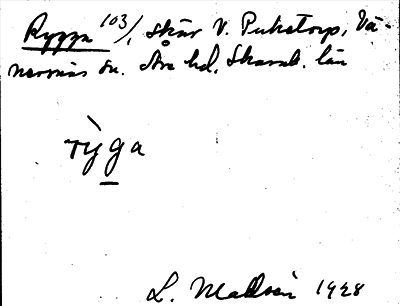 Rygga 103/, skär V. Pukstorp, Vä-
nersnäs sn. Åse hd. Skarab. län
rỳga
L. Mattsén 1928